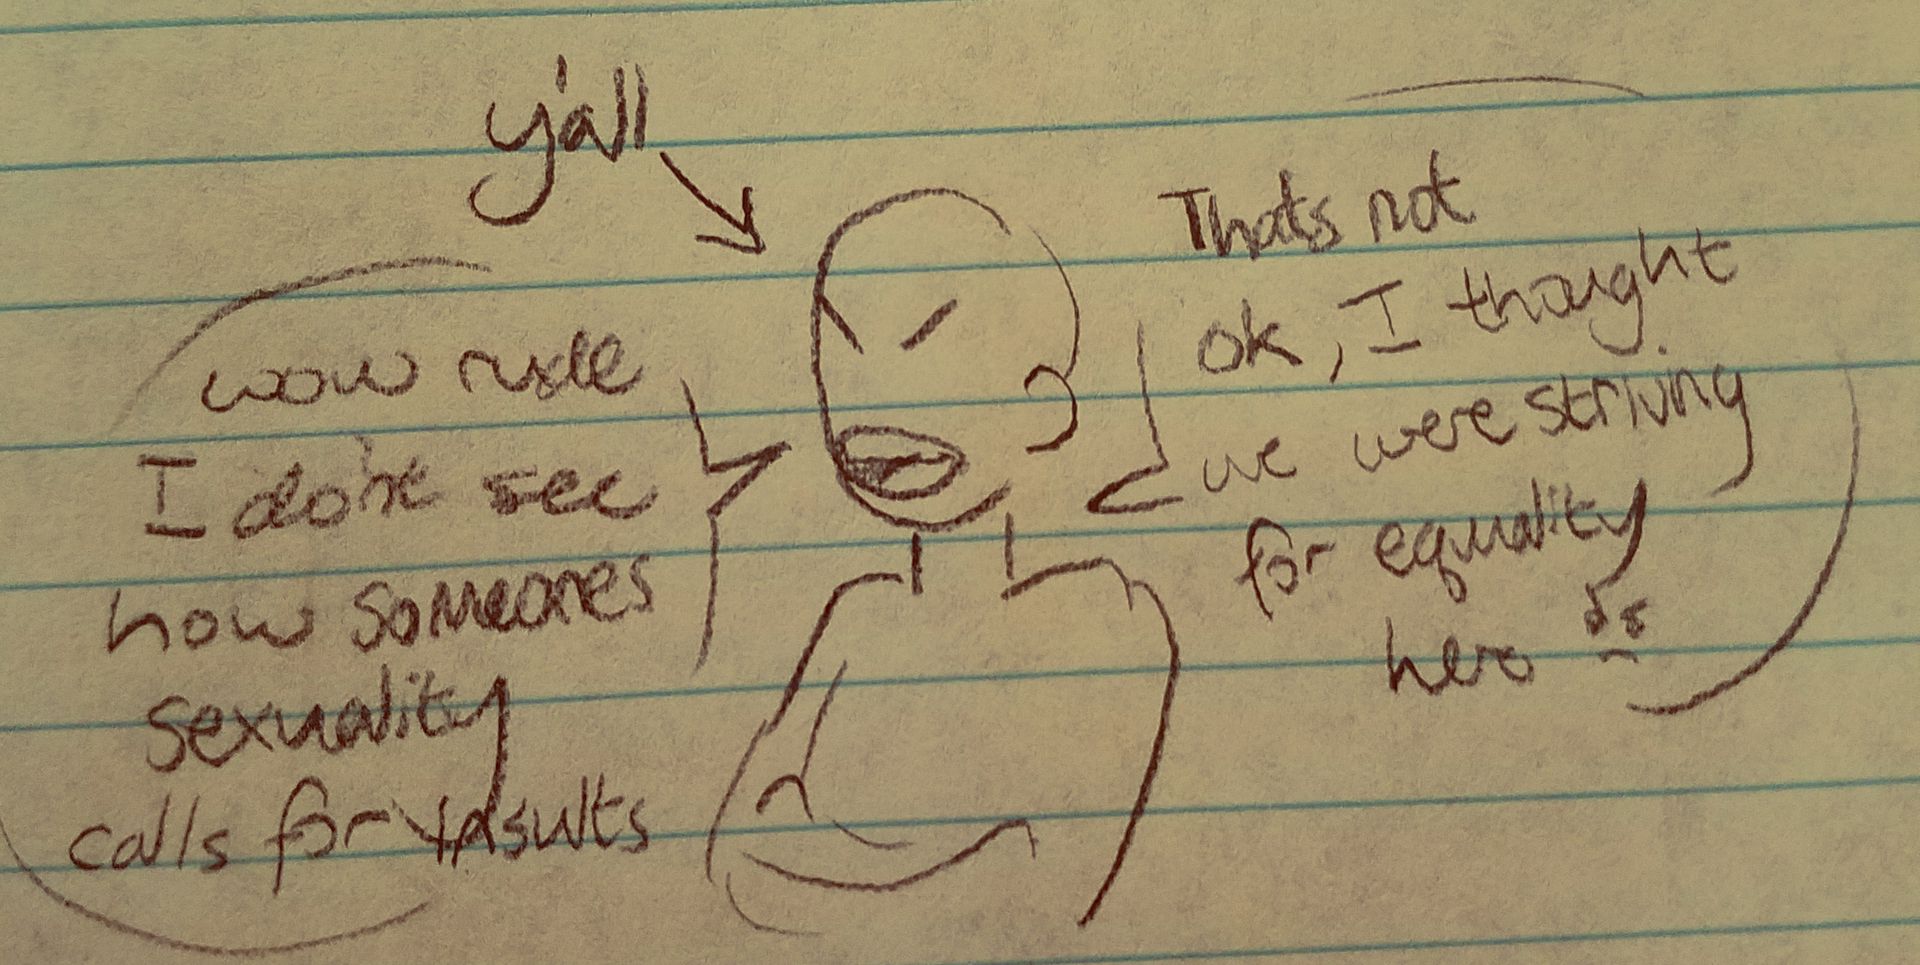 y'all
wow rude
I don't see
how someones
sexuality
calls for insults
Thats not
ok, I thought
we were striving
for equality
here